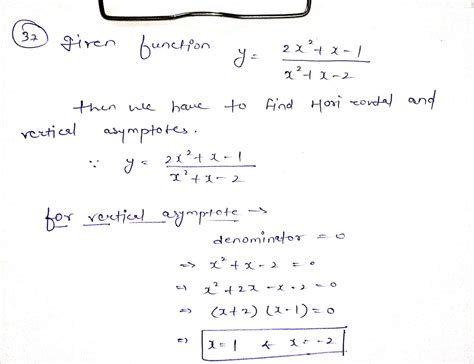 32 given function y = (2x²+x-1)/(x²+x-2)
then we have to find Hori zontal and
vertical asymptotes.
∵ y = (2x²+x-1)/(x²+x-2)
for vertical asymptote →
denominator = 0
⇒ x²+x-2 = 0
⇒ x²+2x-x-2 = 0
⇒ (x+2)(x-1) = 0
⇒ x=1 & x=-2